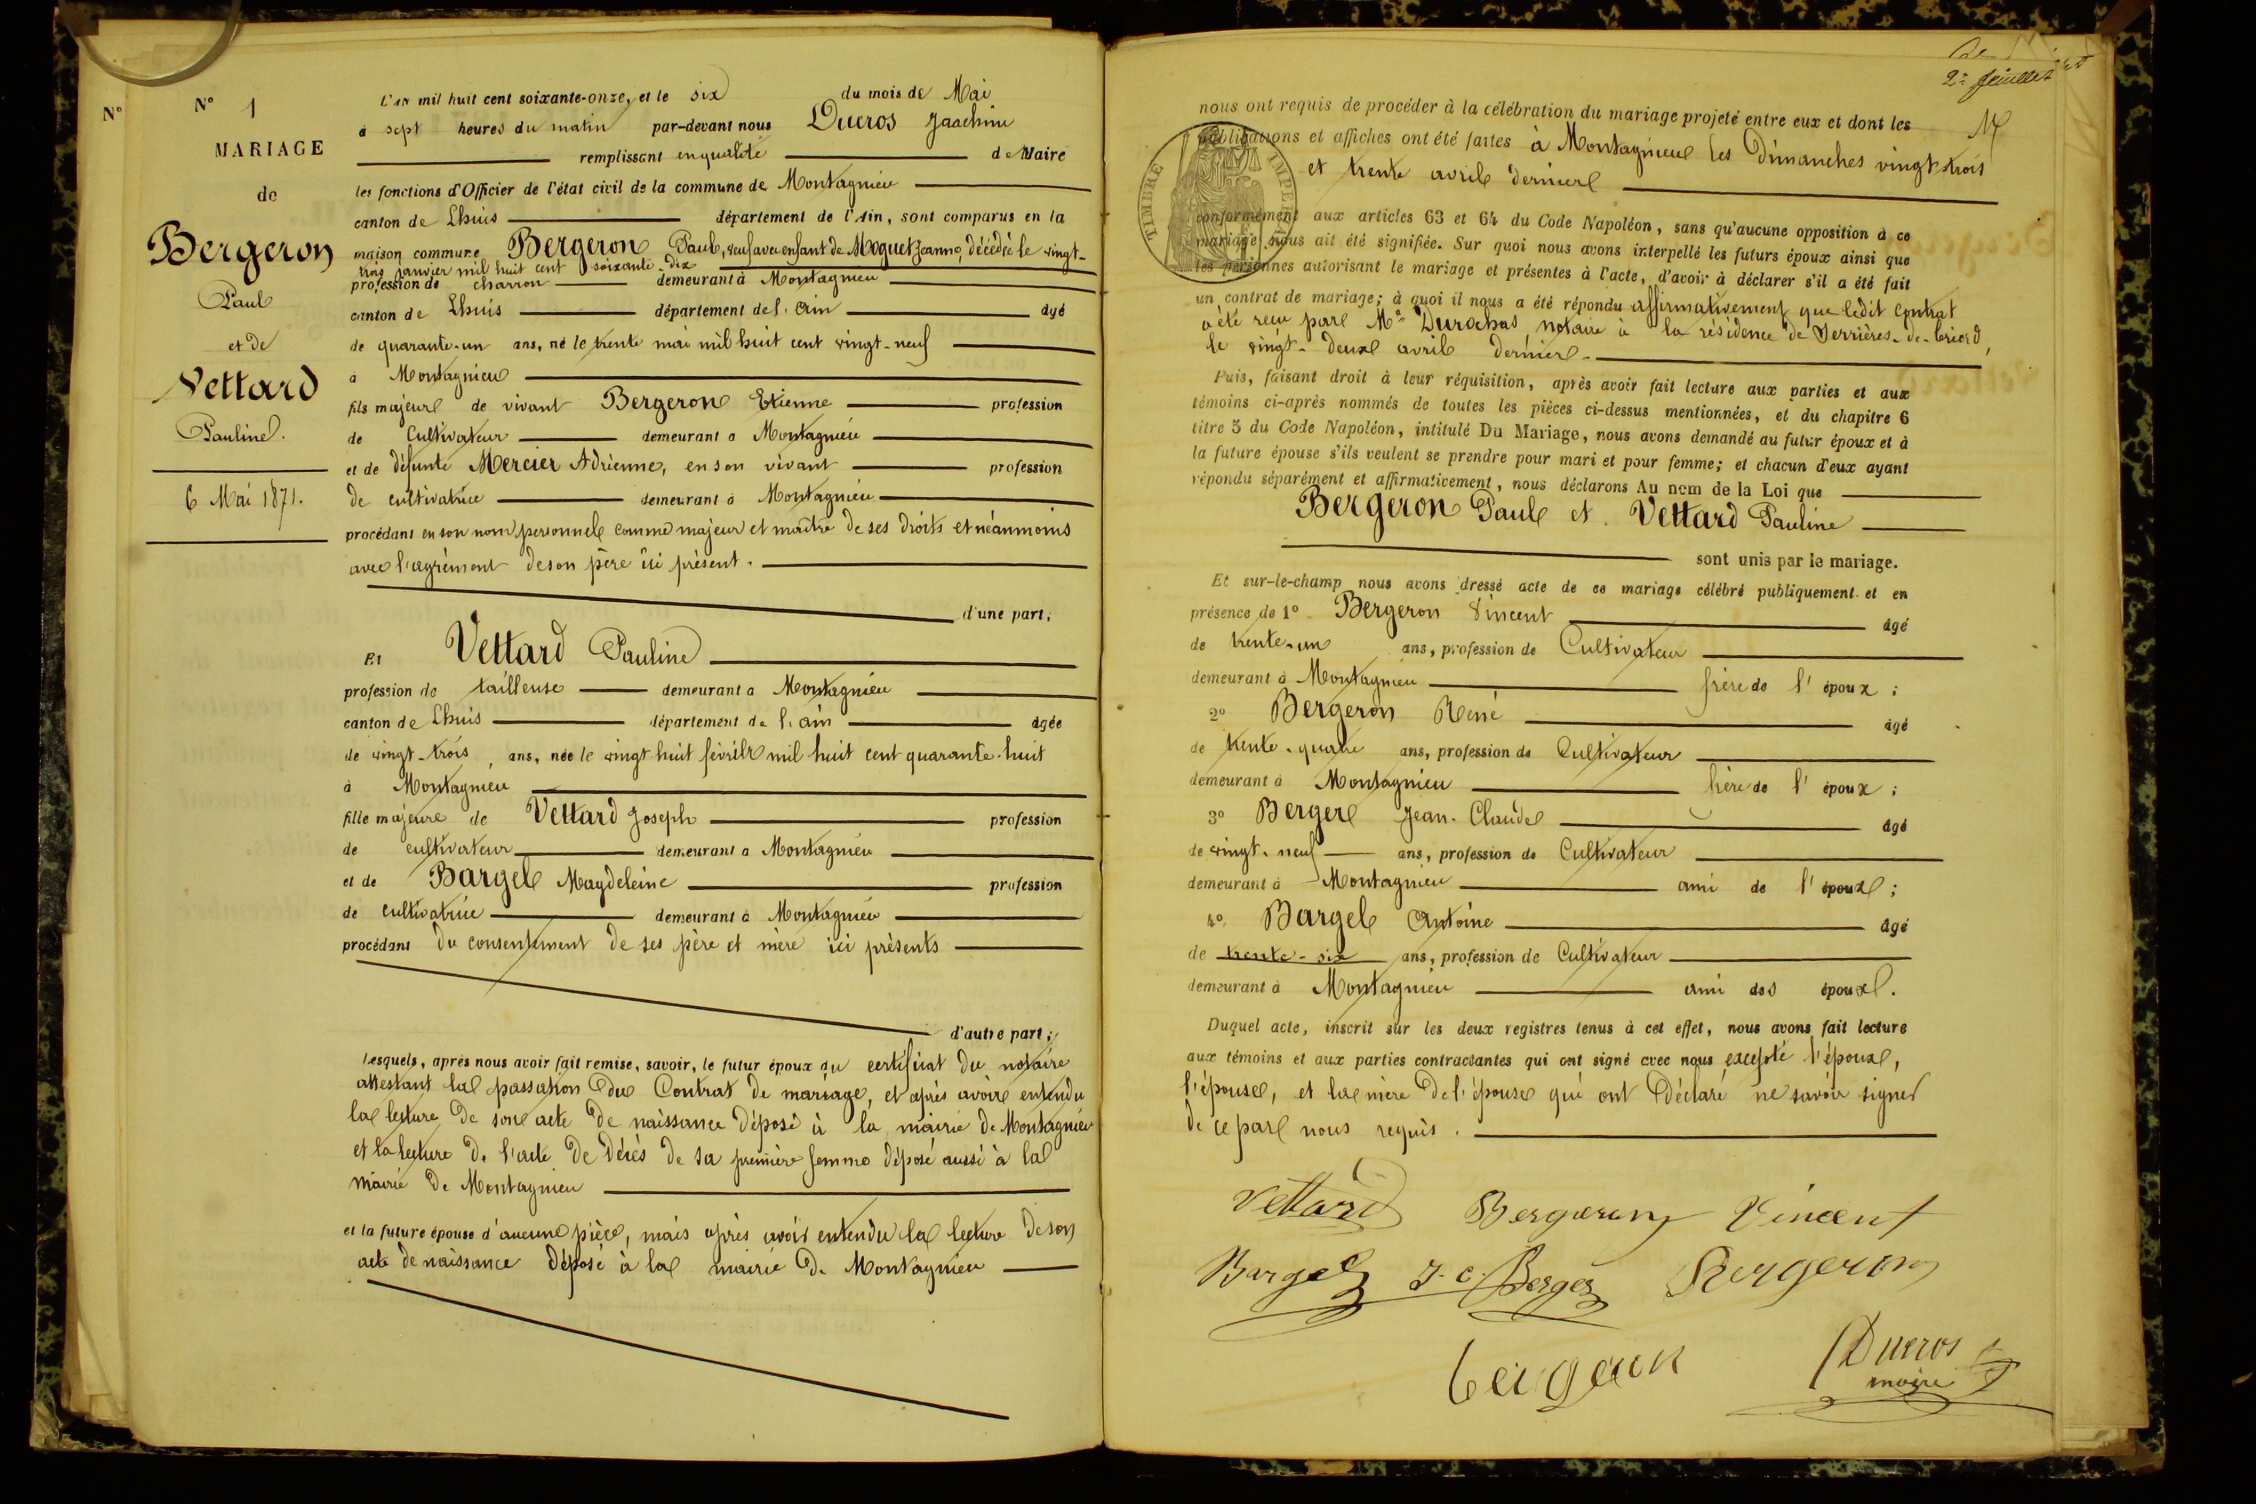 N°
N° 1
MARIAGE
de
Bergeron
Paul
et de
Vettard
Pauline.
6 Mai 1871.
L'an mil huit cent soixante-onze, et le six du mois de Mai
à sept heures du matin par-devant nous Ducros Joachim
remplissant en qualité de Maire
les fonctions d'Officier de l'état civil de la commune de Montagnieu
canton de Lhuis département de l'Ain, sont comparus en la
maison commune Bergeron Paul, veuf avec enfant de Moguet Jeanne, décédée le vingt-
trois janvier mil huit cent soixante-dix
profession de charron demeurant à Montagnieu
canton de Lhuis département de l'ain âgé
de quarante-un ans, né le trente mai mil huit cent vingt-neuf
à Montagnieu
fils majeur de vivant Bergeron Etienne profession
de Cultivateur demeurant à Montagnieu
et de défunte Mercier Adrienne, en son vivant profession
de cultivatrice demeurant à Montagnieu
procédant en son nom personnel comme majeur et maître de ses droits et néanmoins
avec l'agrément de son père ici présent.
d'une part;
Et Vettard Pauline
profession de tailleuse demeurant à Montagnieu
canton de Lhuis département de l'ain âgée
de vingt-trois, ans, née le vingt huit février mil huit cent quarante-huit
à Montagnieu
fille majeure de Vettard Joseph profession
de cultivateur demeurant à Montagnieu
et de Bargel Magdeleine profession
de cultivatrice demeurant à Montagnieu
procédant du consentement de ses père et mère ici présents
d'autre part;
Lesquels, après nous avoir fait remise, savoir, le futur époux du certificat du notaire
attestant la passation du Contrat de mariage, et après avoir entendu
la lecture de son acte de naissance déposé à la mairie de Montagnieu
et la lecture de l'acte de décès de sa première femme déposé aussi à la
mairie de Montagnieu
et la future épouse d'aucune pièce, mais après avoir entendu la lecture de son
acte de naissance déposé à la mairie de Montagnieu
2e feuillet
nous ont requis de procéder à la célébration du mariage projeté entre eux et dont les
publications et affiches ont été faites à Montagnieu les Dimanches vingt-trois
et trente avril dernier
TIMBRE IMPERIAL
conformément aux articles 63 et 64 du Code Napoléon, sans qu'aucune opposition à ce
mariage nous ait été signifiée. Sur quoi nous avons interpellé les futurs époux ainsi que
les personnes autorisant le mariage et présentes à l'acte, d'avoir à déclarer s'il a été fait
un contrat de mariage; à quoi il nous a été répondu affirmativement que ledit contrat
a été reçu par Me Durochas notaire à la résidence de Serrières-de-briord,
le vingt-deux avril dernier.
Puis, faisant droit à leur réquisition, après avoir fait lecture aux parties et aux
témoins ci-après nommés de toutes les pièces ci-dessus mentionnées, et du chapitre 6
titre 5 du Code Napoléon, intitulé Du Mariage, nous avons demandé au futur époux et à
la future épouse s'ils veulent se prendre pour mari et pour femme; et chacun d'eux ayant
répondu séparément et affirmativement, nous déclarons Au nom de la Loi que
Bergeron Paul et Vettard Pauline
sont unis par le mariage.
Et sur-le-champ nous avons dressé acte de ce mariage célébré publiquement et en
présence de 1° Bergeron Vincent âgé
de trente-un ans, profession de Cultivateur
demeurant à Montagnieu frère de l'époux;
2° Bergeron René âgé
de trente-quatre ans, profession de Cultivateur
demeurant à Montagnieu frère de l'époux;
3° Berger Jean-Claude âgé
de vingt-neuf ans, profession de Cultivateur
demeurant à Montagnieu ami de l'époux;
4° Bargel Antoine âgé
de trente-six ans, profession de Cultivateur
demeurant à Montagnieu ami des époux.
Duquel acte, inscrit sur les deux registres tenus à cet effet, nous avons fait lecture
aux témoins et aux parties contractantes qui ont signé avec nous excepté l'époux,
l'épouse, et la mère de l'épouse qui ont déclaré ne savoir signer
de ce par nous requis.
Vettard Bergeron Vincent
Bargel J. C. Berger Bergeron
bergeron Ducros
maire